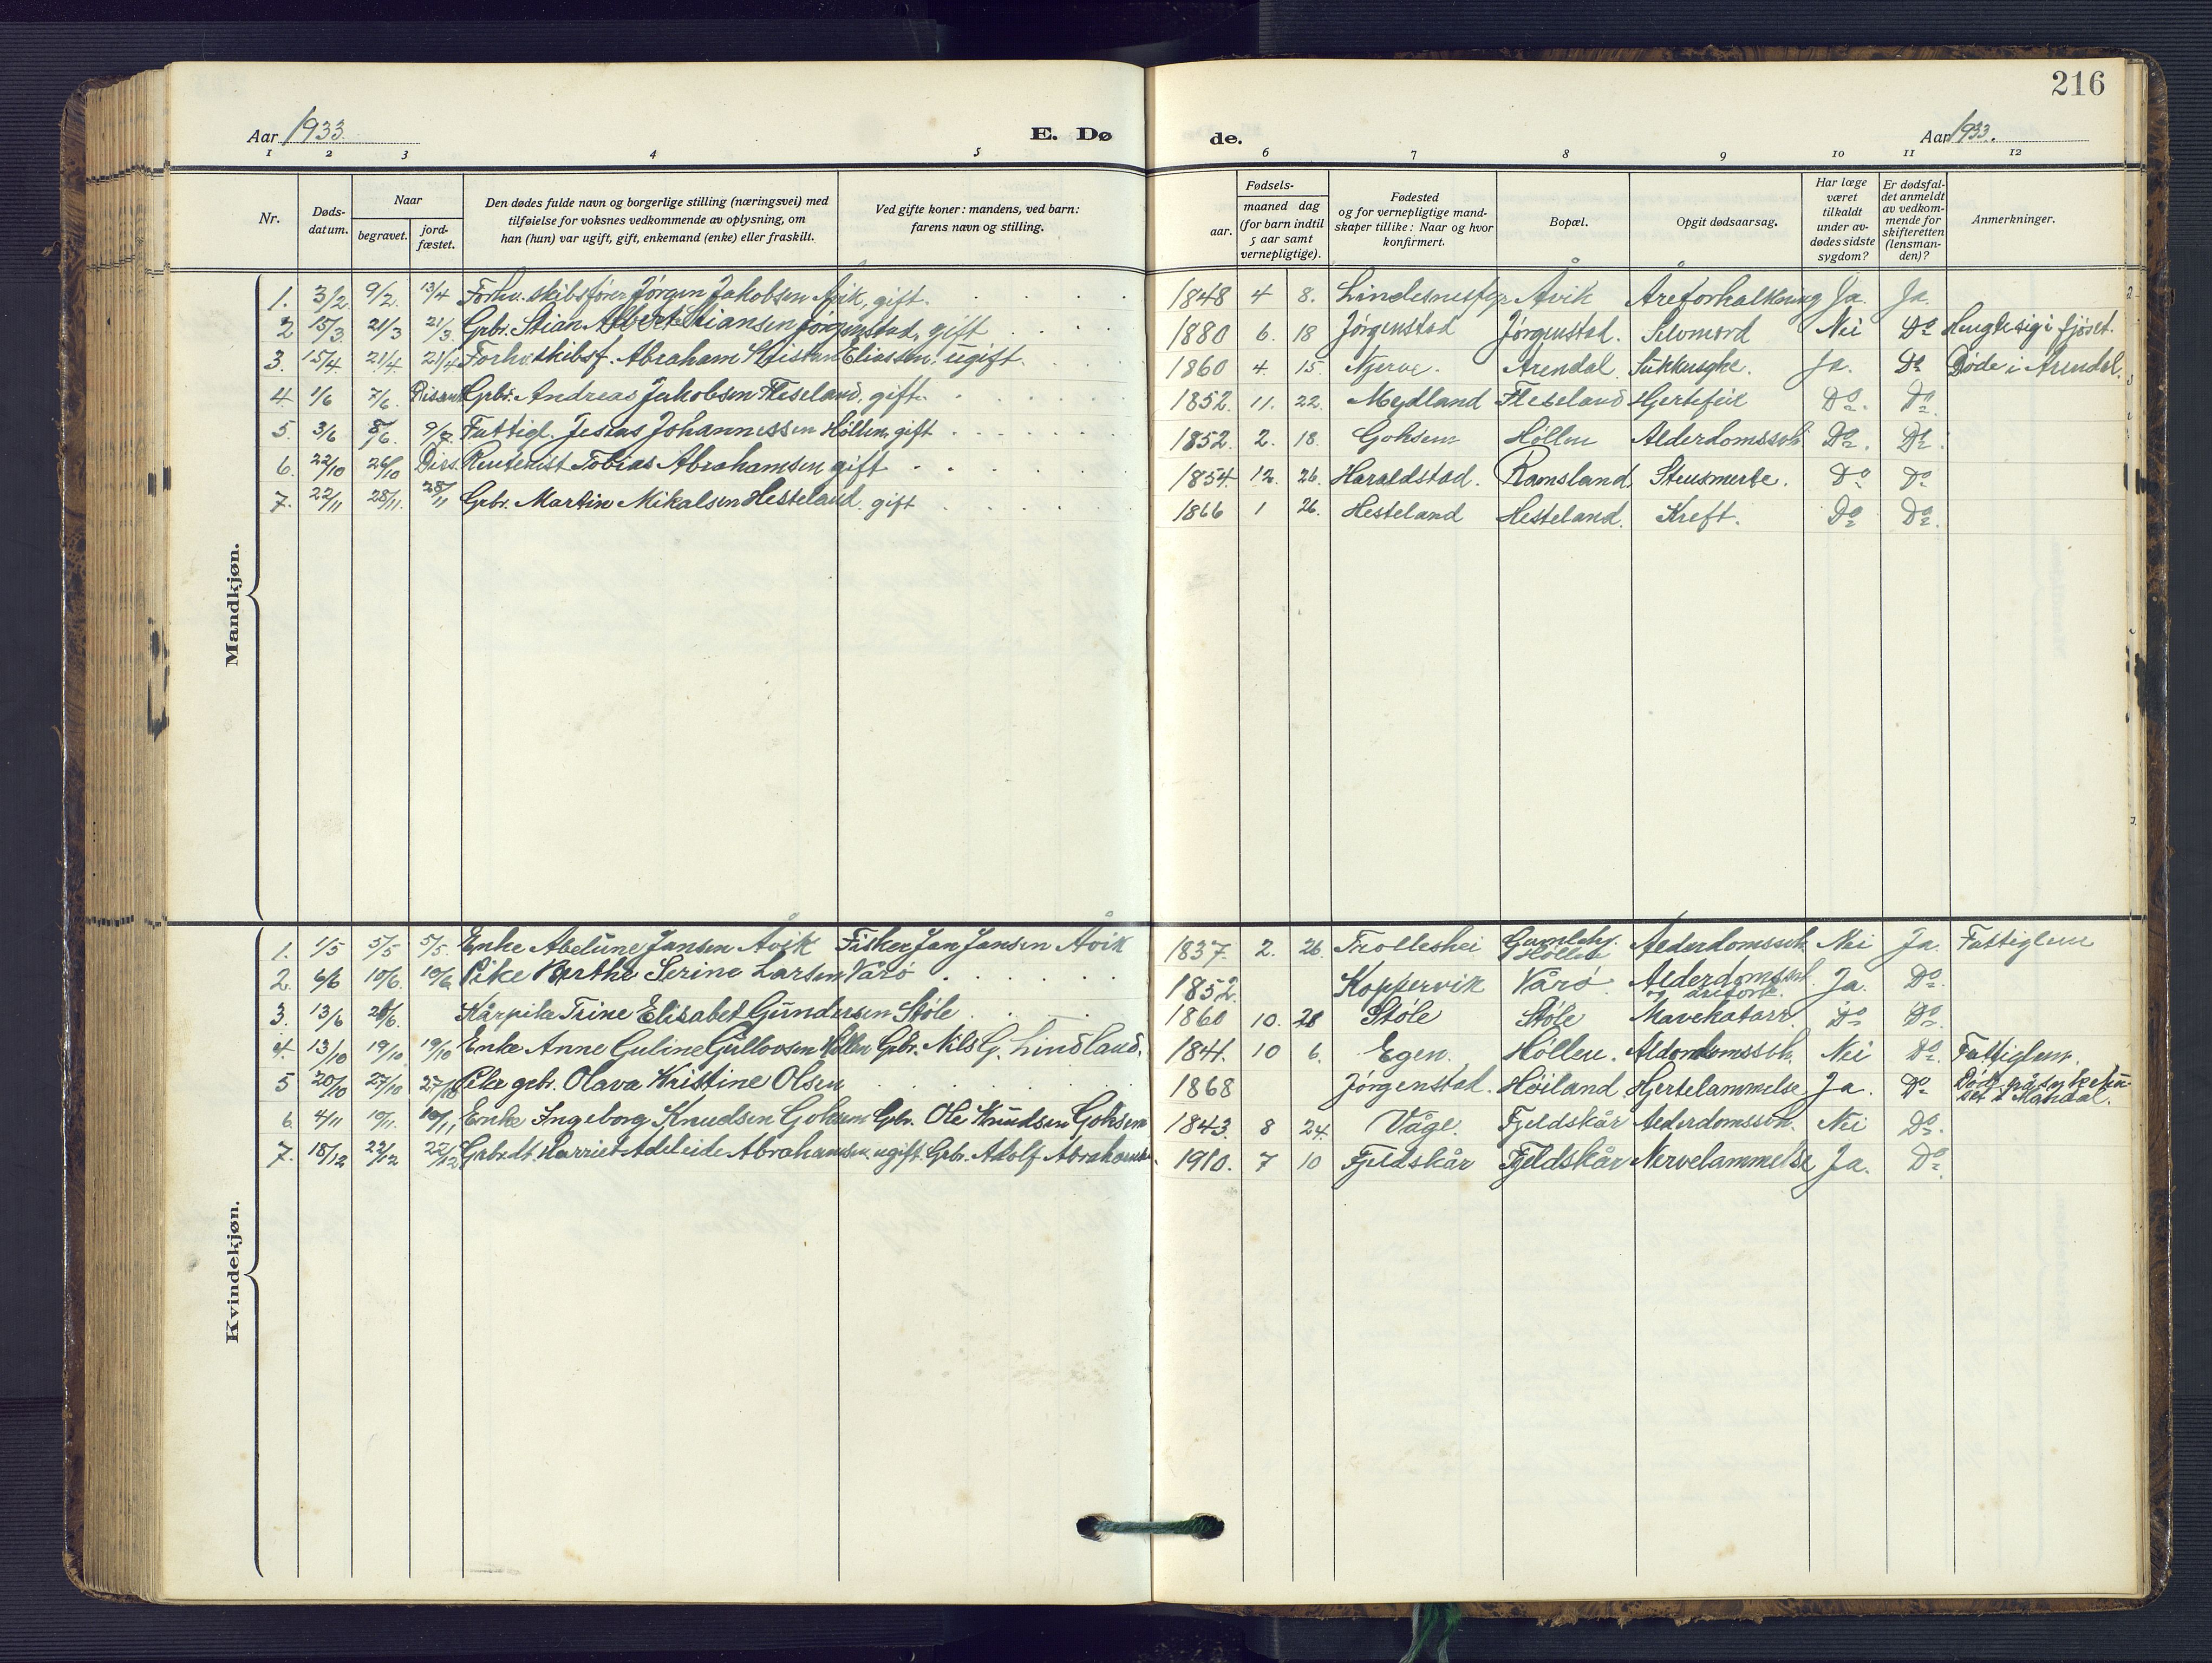 216
Aar 1933
E. Dø
de.
Aar 1933.
1 2 3 4 5 6 7 8 9 10 11 12
Nr.
Døds-
datum.
Naar
begravet.
jord-
fæstet.
Den dødes fulde navn og borgerlige stilling (næringsvei) med
tilføielse for voksnes vedkommende av oplysning, om
han (hun) var ugift, gift, enkemand (enke) eller fraskilt.
Ved gifte koner: mandens, ved barn:
farens navn og stilling.
Fødsels-
aar.
maaned dag
(for barn indtil
5 aar samt
vernepligtige).
Fødested
og for vernepligtige mand-
skaper tillike: Naar og hvor
konfirmert.
Bopæl.
Opgit dødsaarsag.
Har læge
været
tilkaldt
under av-
dødes sidste
sygdom?
Er dødsfal-
det anmeldt
av vedkom-
mende for
skifteretten
(lensman-
den)?
Anmerkninger.
Mandkjøn.
1. 3/2 9/2 13/4 Forhv. skibsfører Jørgen Jakobsen Åvik, gift. 1848 4 8. Lindesnesfyr Åvik Åreforkalkning Ja. Ja.
2 15/3 21/3 21/3 Grbr. Stian Albert Stiansen Jørgenstad, gift 1880 6. 18 Jørgenstad Jørgenstad. Selvmord Nei Do Hengte sig i fjøset.
3. 15/4 21/4 21/4 Forhv. skibsf. Abraham Kristian Eliassen, ugift. 1860 4. 15. Njerve. Arendal. Sukkersyke. Ja. Do Døde i Arendal.
4 1/6 7/6. Grbr. Andreas Jakobsen Fleseland, gift. 1852. 11. 22. Mydland Fleseland Hjertefeil Do. Do
5. 3/6 8/6. Fattigl. Johannessen Høllen, gift 1852. 2. 18. Goksem Høllen Alderdomssvk. Do. Do.
6. 22/10 26/10 Dirs. Rentenist Tobias Abrahamsen gift 1854 12. 26. Haraldstad. Ramsland. Stensmerte. Do Do
7. 22/11 28/11. 28/11 Grbr. Martin Mikalsen Hesteland. gift 1866 1 26. Hesteland Hesteland. Kreft. Do Do.
Kvindekjøn.
1. 1/5 5/5 5/5. Enke Abeline Jansen Åvik Fisker Jan Jansen Åvik 1837. 2. 26. Trolleshei Gamlehj. Høllen Alderdomssvk. Nei Ja. Fattiglem
2. 6/6 10/6. 10/6 Pike Berthe Serine Larsen Vårø 1852. Koppervik Vårø. Alderdomssvk. og årefork. Ja. Do
3. 13/6 26/6. Kårpike Trine Elisabet Gundersen Støle 1860 10. 28 Støle Støle Mavekatarr. Do Do.
4. 13/10 19/10 19/10 Enke Anne Guline Gullovsen Høllen Grbr. Nils G. Lindland. 1841. 10 6. Egen. Høllen. Alderdomssvk. Nei Do. Fattiglem.
5 20/10 27/10 27/10 Pike grbr. Olava Kristine Olsen 1868 Jørgenstad. Høiland. Hjertelammelse Ja. Do Død på sykehu-
set i Mandal.
6. 4/11 10/11. 10/11 Enke Ingeborg Knudsen Goksem Grbr. Ole Knudsen Goksem 1843. 8 24. Våge. Fjeldskår Alderdomssvk. Nei Do.
7. 18/12 22/12 22/12 Grbrdt. Harriet Adeleide Abrahamsen ugift. Grbr. Adolf Abrahams. 1910. 7 10 Fjeldskår Fjeldskår Nervelammelse Ja. Do